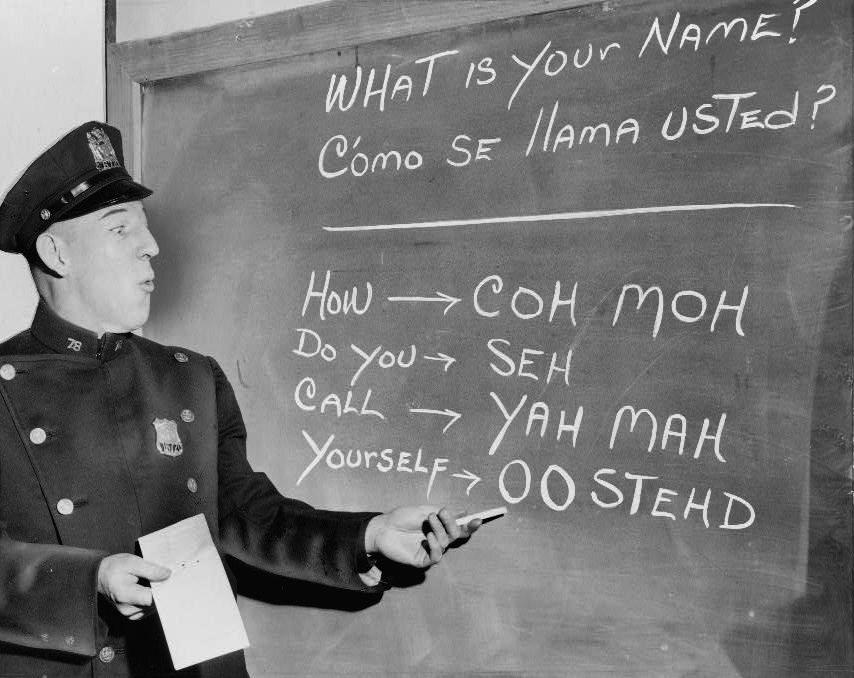 WHAT IS YOUR NAME?
CÓMO SE llAMA USTEd?
HOW → COH MOH
DO YOU → SEH
CALL → YAH MAH
YOURSELF → OO STEHD
78